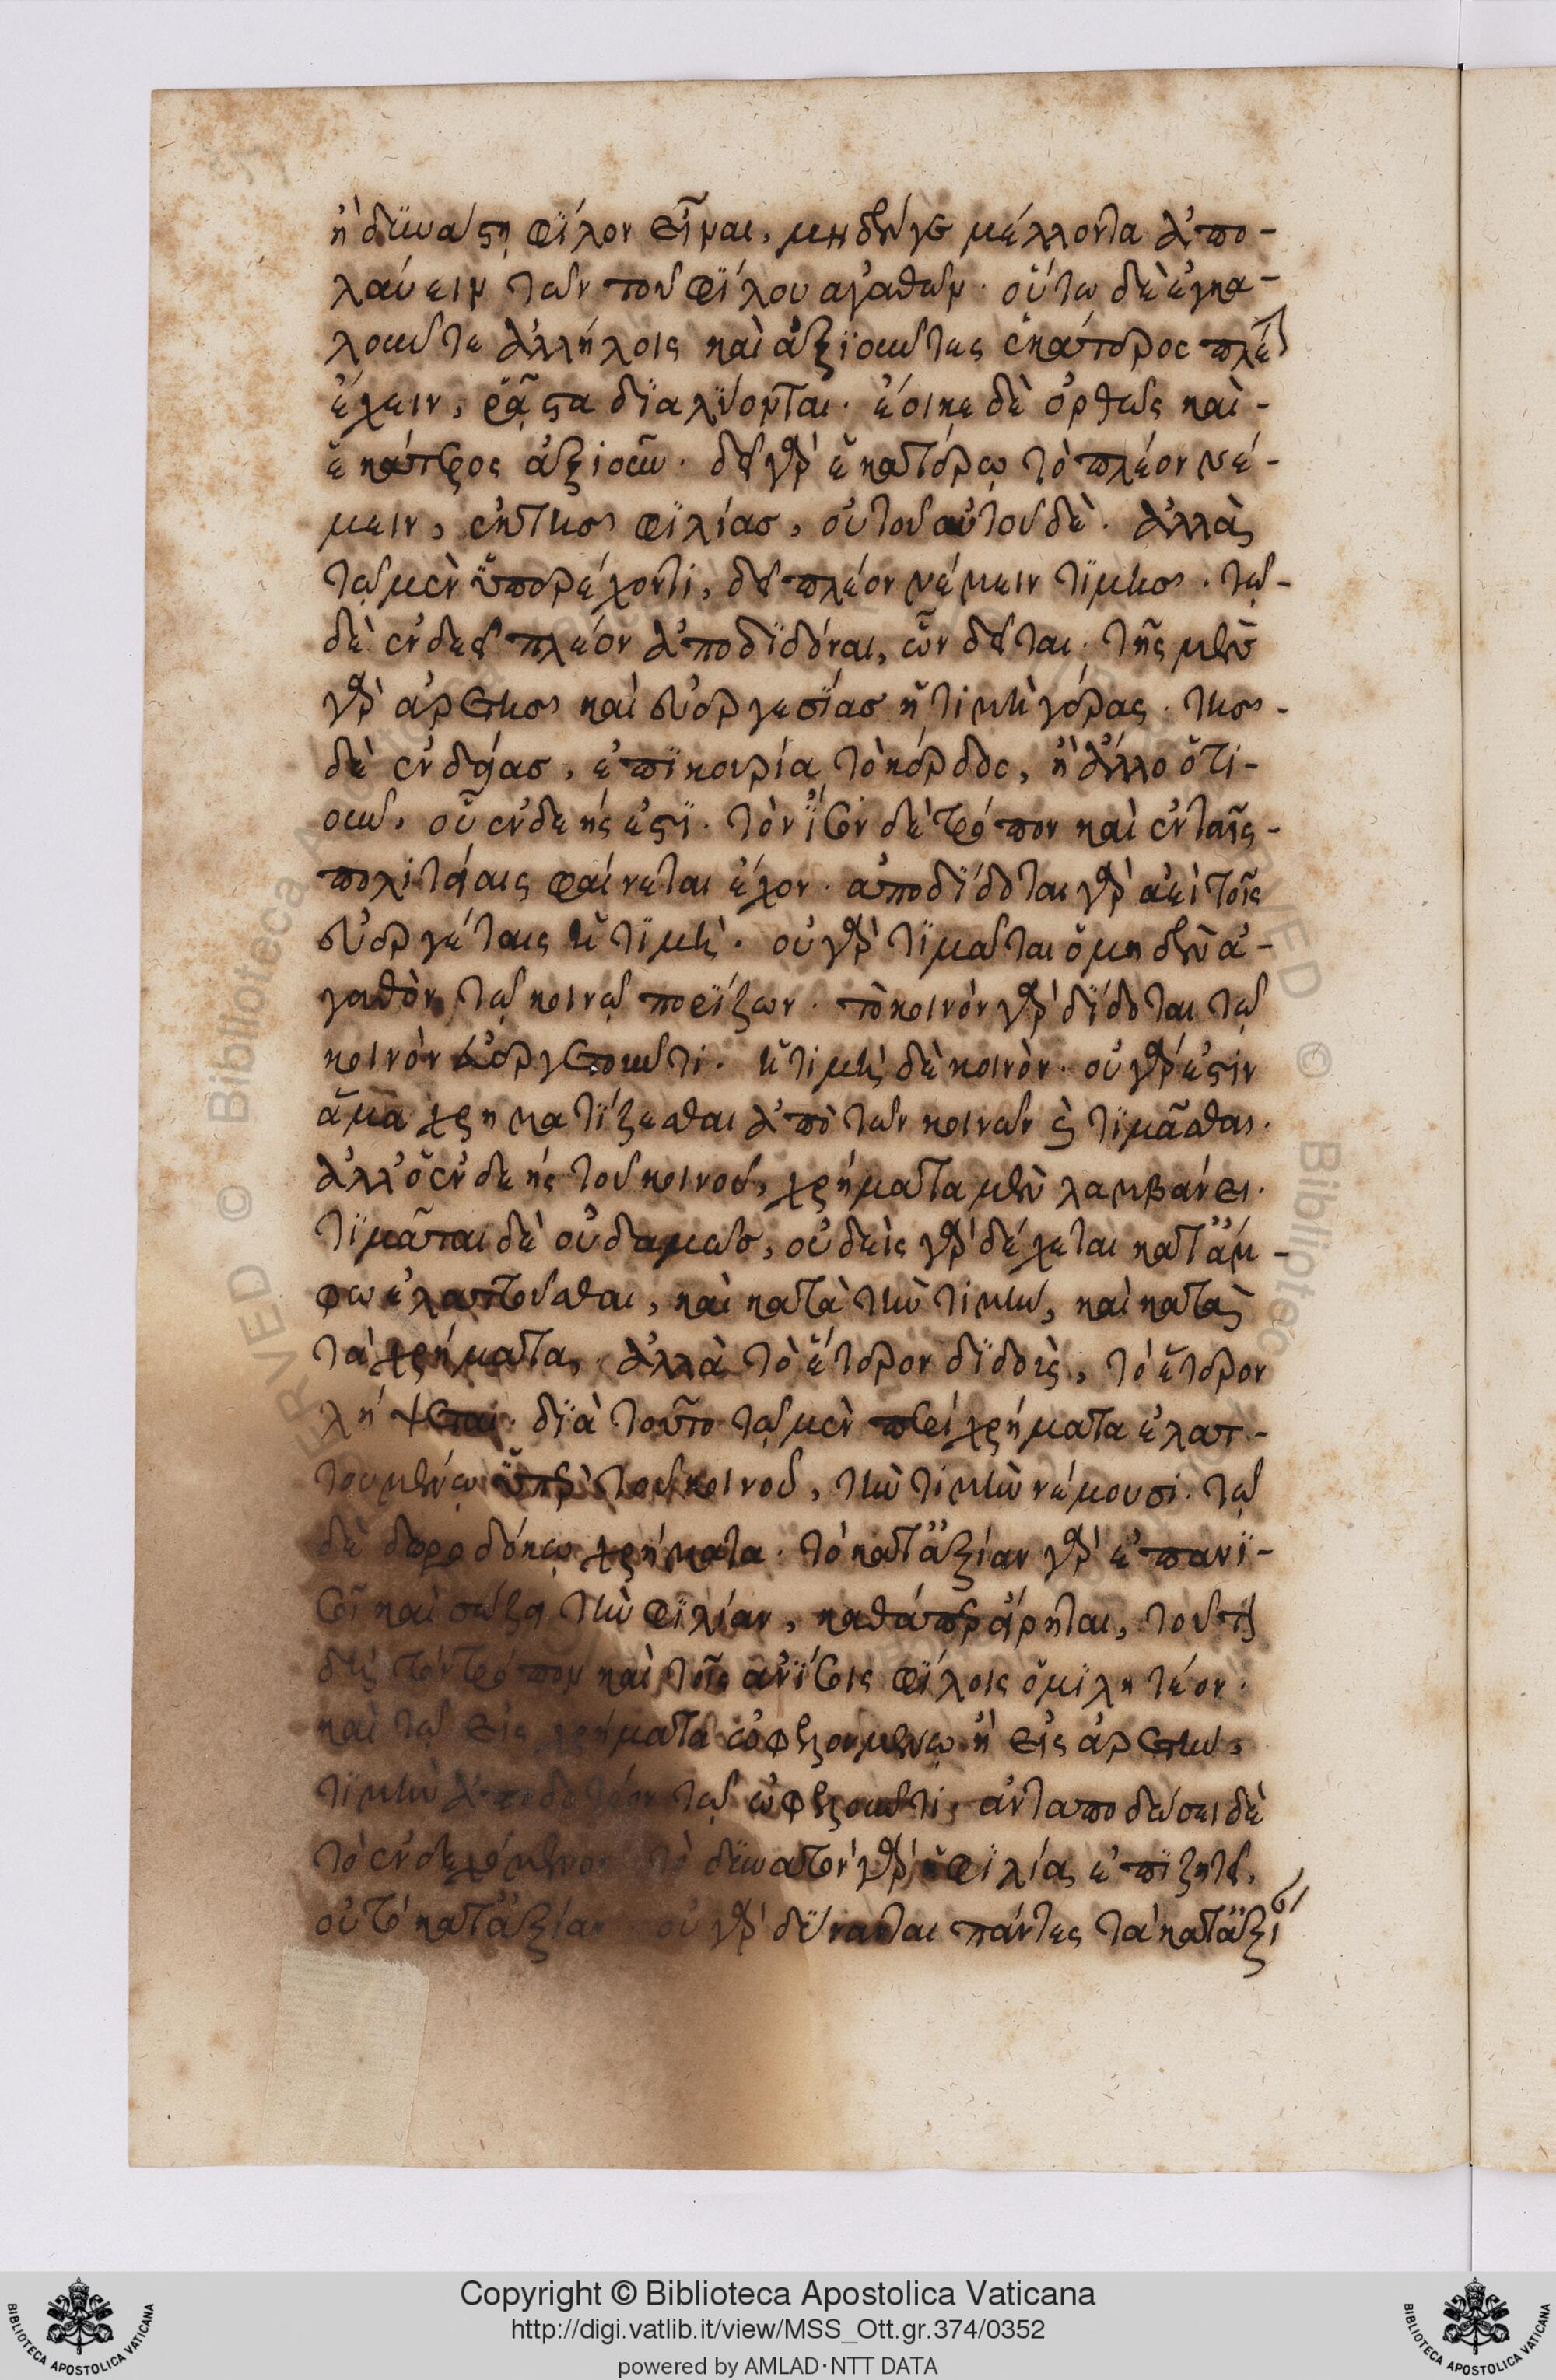 ἢ δυνάστῃ φίλον εἶναι, μηδένγε μέλλοντα ἀπο-
λαύειν τῶν τοῦ φίλου ἀγαθῶν. οὕτω δὲ ἐγκα-
λοῦντε ἀλλήλοις καὶ ἀξιοῦντες ἑκάτερος πλέον
ἔχειν, ῥᾷστα διαλύονται. ἔοικε δὲ ὀρθῶς καὶ-
ἑκάτερος ἀξιοῦν. δεῖ γὰρ ἑκατέρῳ τὸ πλέον νέ-
μειν, ἐκ τῆς φιλίας, οὐ τοῦ αὐτοῦ δὲ. ἀλλὰ
τῷ μὲν ὑπερέχοντι, δεῖ πλέον νέμειν τιμῆς. τῷ-
δὲ ἐνδεεῖ πλέον ἀποδιδόναι, ὧν δεῖται. τῆς μὲν
γὰρ ἀρετῆς καὶ εὐεργεσίας ἡ τιμὴ γέρας. τῆς-
δὲ ἐνδείας, ἐπικουρία τὸ κέρδος, ἢ ἄλλο ὅτι-
οῦν, οὗ ἐνδεής ἐστι. τὸν ἴσον δὲ τρόπον καὶ ἐν ταῖς-
πολιτείαις φαίνεται ἔχον. ἀποδίδοται γὰρ ἀεὶ τοῖς
εὐεργέταις ἡ τιμὴ. οὐ γὰρ τιμᾶται ὁ μηδὲν ἀ-
γαθὸν τῷ κοινῷ πορίζων. τὸ κοινὸν γὰρ δίδοται τῷ
κοινὸν εὐεργετοῦντι. ἡ τιμὴ δὲ κοινὸν. οὐ γὰρ ἔστιν
ἅμα χρηματίζεσθαι ἀπὸ τῶν κοινῶν καὶ τιμᾶσθαι.
ἀλλ' ὁ ἐνδεής τοῦ κοινοῦ, χρήματα μὲν λαμβάνει.
τιμᾶται δὲ οὐδαμῶς, οὐδεὶς γὰρ δέχεται κατ' ἄμ-
φω ἐλαττοῦσθαι, καὶ κατὰ τὴν τιμὴν, καὶ κατὰ
τὰ χρήματα, ἀλλὰ τὸ ἕτερον διδοὶς, τὸ ἕτερον
λήψεται. διὰ τοῦτο τῷ μὲν περὶ χρήματα ἐλατ-
τουμένῳ ὑπὲρ τοῦ κοινοῦ, τὴν τιμὴν νέμουσι. τῷ
δὲ δωροδόκῳ χρήματα. τὸ κατ' ἀξίαν γὰρ ἐπανι-
σοῖ καὶ σώζει τὴν φιλίαν, καθάπερ εἴρηται, τοῦτον
δὴ τὸν τρόπον καὶ τοῖς ἀνίσοις φίλοις ὁμιλητέον.
καὶ τῷ εἰς χρήματα ὠφελουμένῳ ἢ εἰς ἀρετὴν,
τιμὴν ἀποδοτέον τῷ ὠφελοῦντι, ἀνταποδώσει δὲ
τὸ ἐνδεχόμενον τὸ δυνατὸν γὰρ ἡ φιλία ἐπιζητεῖ,
οὐ τὸ κατ' ἀξίαν οὐ γὰρ δύνανται πάντες τὰ κατ' ἀξί
Copyright © Biblioteca Apostolica Vaticana
http://digi.vatlib.it/view/MSS_Ott.gr.374/0352
powered by AMLAD·NTT DATA
BIBLIOTECA APOSTOLICA VATICANA
BIBLIOTECA APOSTOLICA VATICANA